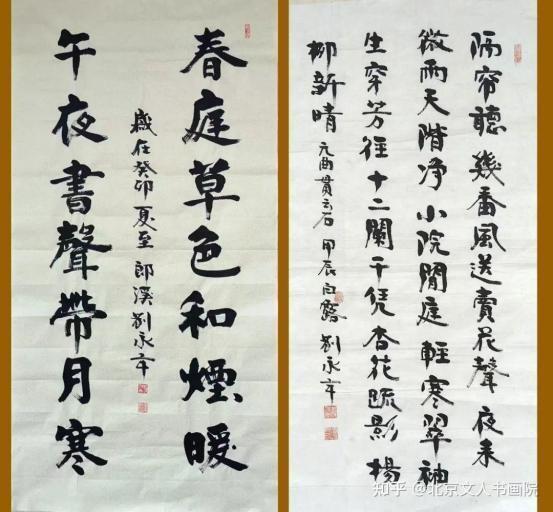 春庭草色和煙暖
午夜書聲帶月寒
歲在癸卯夏至 郎溪 刘永
隔帘聽幾番風送賣花聲 夜来
微雨天階净 小院閒庭 輕寒翠袖
生穿芳径十二闌干凭 杏花疏影 楊
柳新晴 元曲 貫云石 甲辰白露 刘永
知乎 @北京文人书画院